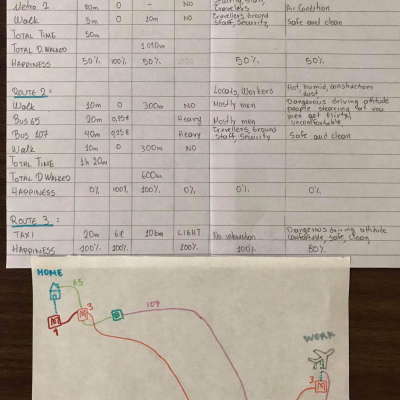 Metro 2 10m 0 - NO Travelers Air Condition
Walk 5m 0 10m NO Travellers, Ground Staff, Security, Safe and clean
TOTAL TIME 50m
TOTAL D. WALKED 1010m
HAPPINESS 50% 100% 50% 50% 50%
ROUTE 2: Locals, Workers Hot, humid, constructions dust
Walk 10m 0 300m NO Mostly men Dangerous driving attitude
people stearing at you
BUS 65 20m 0,95€ Heavy Mostly men men get flirty, uncomfortable
BUS 107 40m 0,95€ Heavy Travellers, Ground Staff, Security Safe and clean
Walk 10m 0 300m NO
TOTAL TIME 1h 20m
TOTAL D WALKED 600m
HAPPINESS 0% 100% 100% 0% 0% 0%
ROUTE 3:
TAXI 20m 6€ 10km LIGHT No interaction Dangerous driving attitude
comfortable, safe, clean,
HAPPINESS 100% 100% 100% 100% 80%
HOME
65
M 3
M
107
WORK
3
M